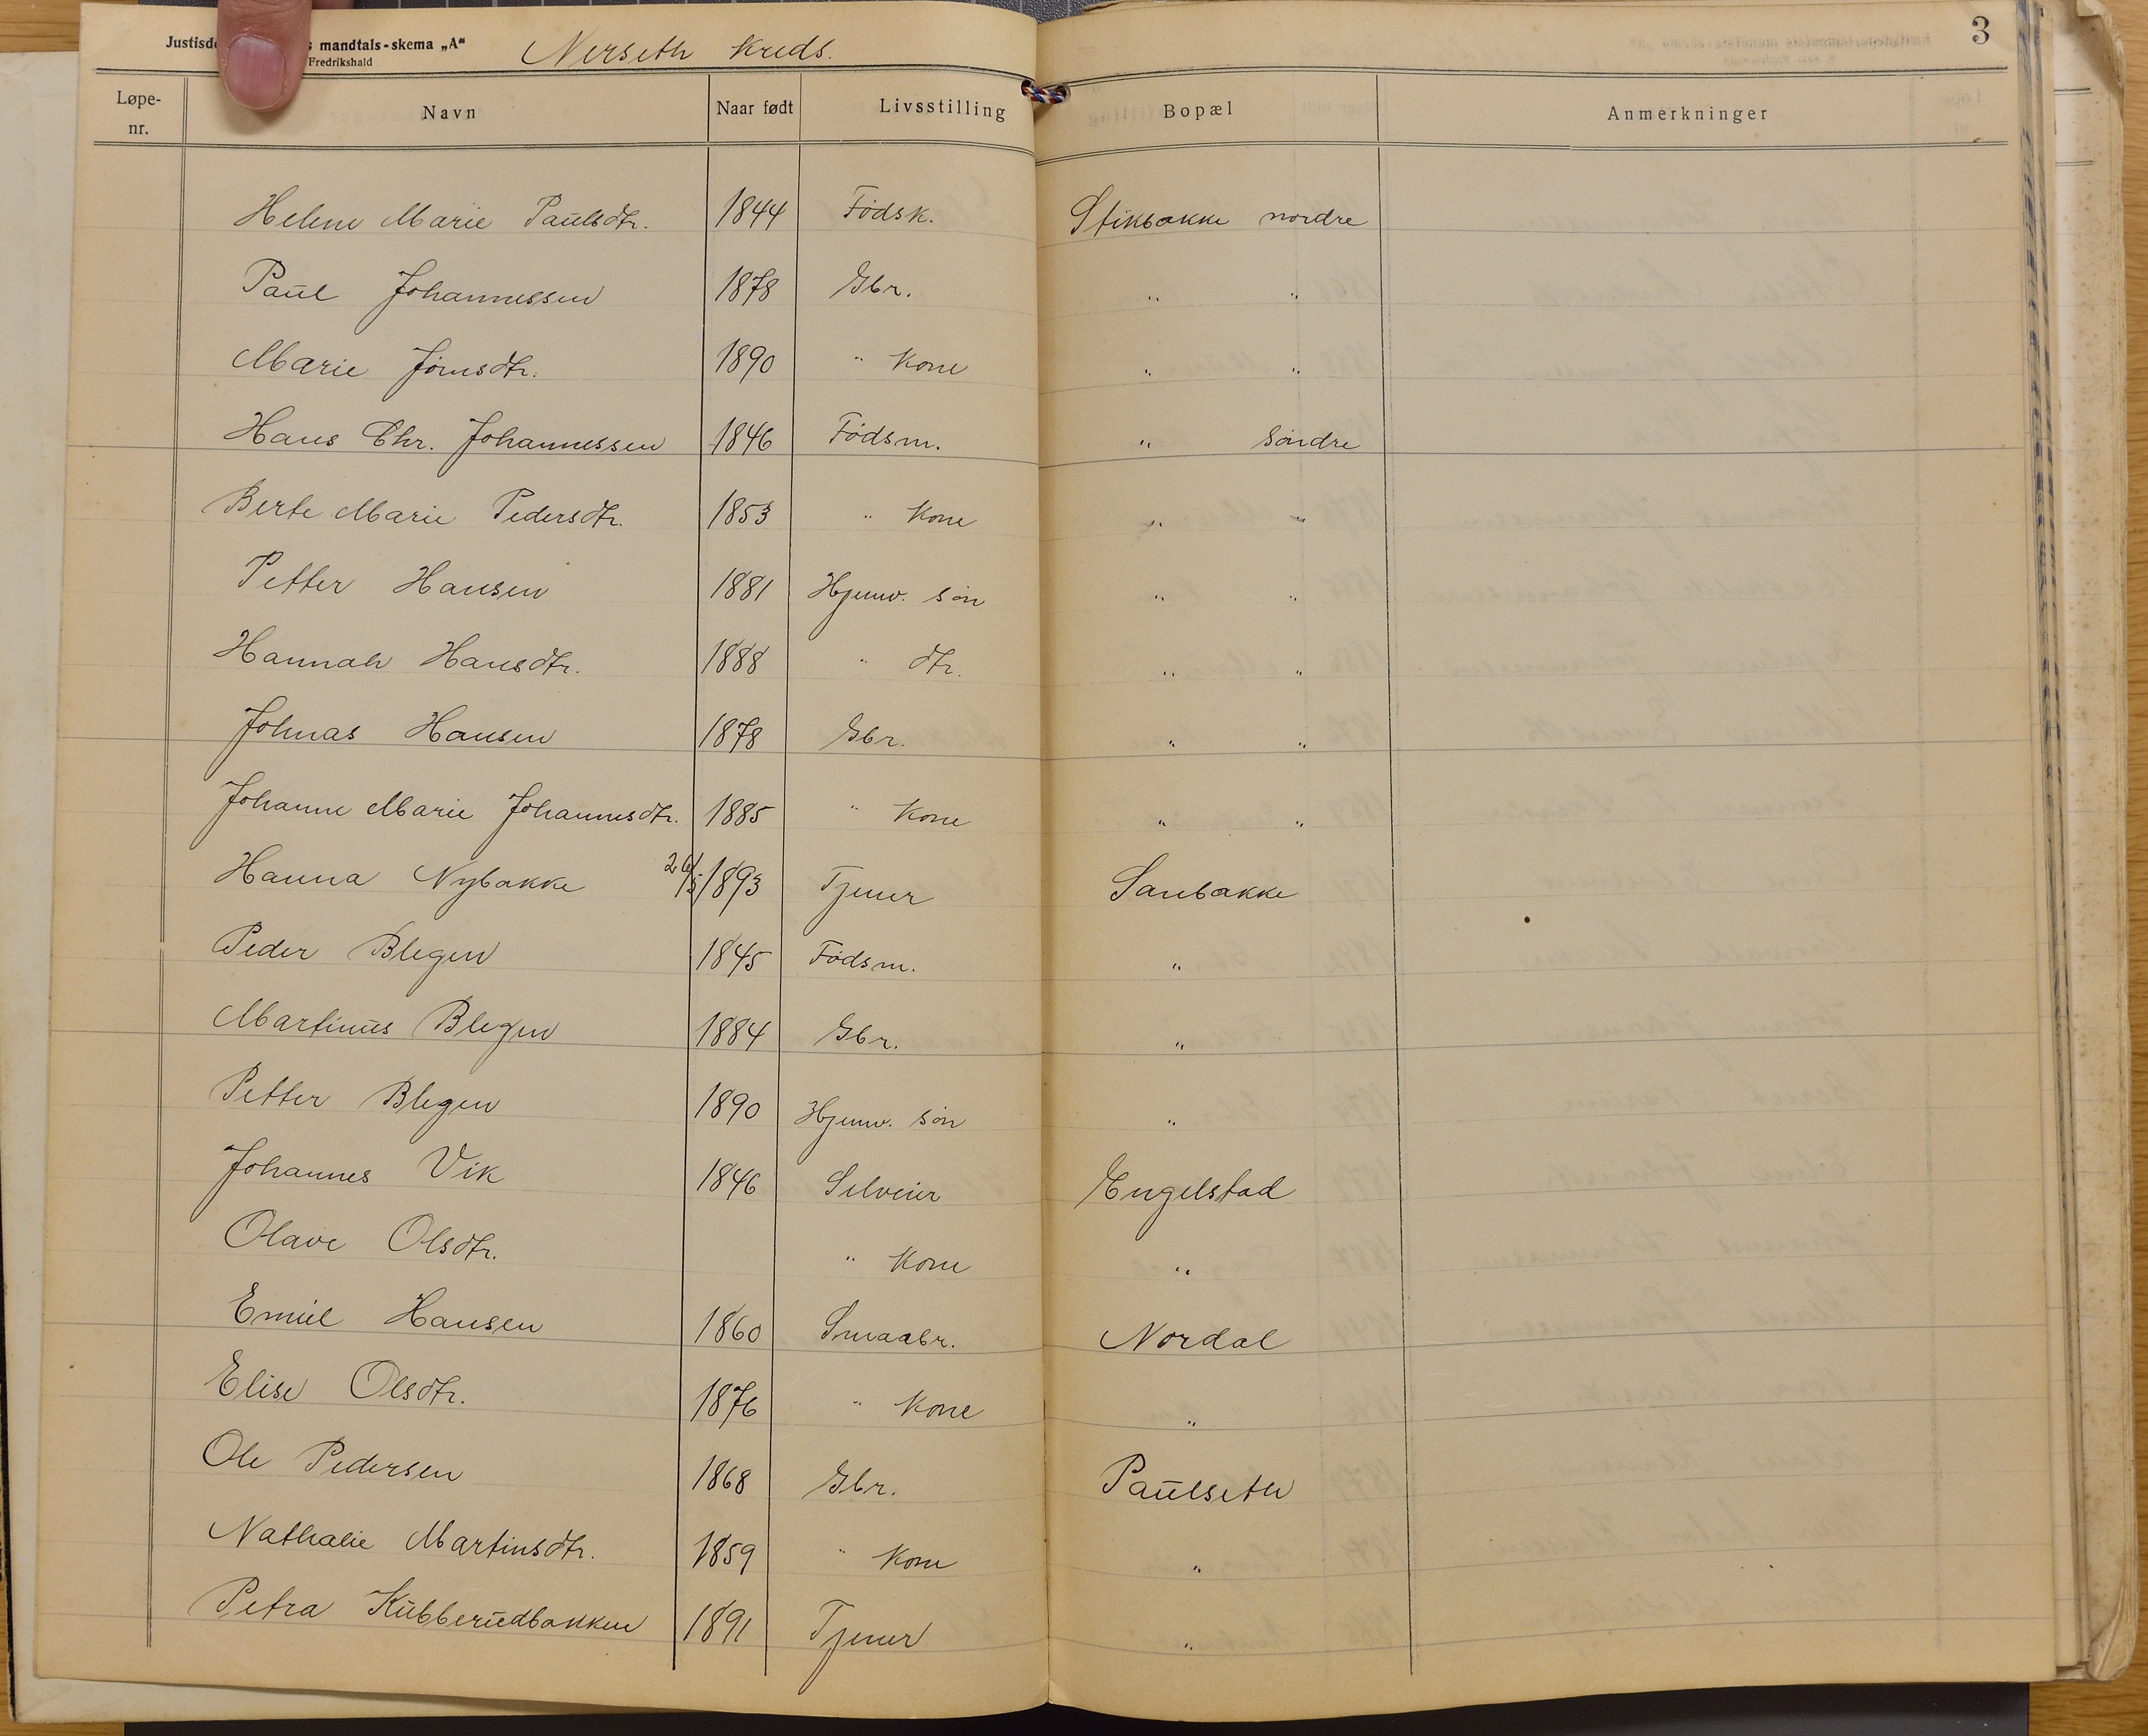 Justisde s mandtals-skema „A“ Nerseth Kreds. 3
Fredrikshald
Løpe-nr. Navn Naar født Livsstilling Bopæl Anmerkninger
Helene Marie Paulsdtr. 1844 Födsk. Stikbakke nordre
Paul Johannessen 1878 Gbr. " "
Marie Jörnsdtr. 1890 " Kone " "
Hans Chr. Johannessen 1846 Födsm. " söndre
Berte Marie Pedersdtr. 1853 " Kone " "
Petter Hansen 1881 Hjemv. sön " "
Hannah Hansdtr. 1888 " dtr. " "
Johnas Hansen 1878 Gbr. " "
Johanne Marie Johannesdtr. 1885 " Kone " "
Hanna Nybakke 1893 Tjener Saubakke
Peder Blegen 1845 Födsm. "
Martinus Blegen 1884 Gbr. "
Petter Blegen 1890 Hjemv. sön "
Johannes Vik 1846 Selveier Engelstad
Olave Olsdtr. " Kone "
Emil Hansen 1860 Smaabr. Nordal
Elise Olsdtr. 1876 " Kone "
Ole Pedersen 1868 Gbr. Paulseth
Nathalie Martinsdtr. 1859 " Kone "
Petra Kubberudbakken 1891 Tjener "